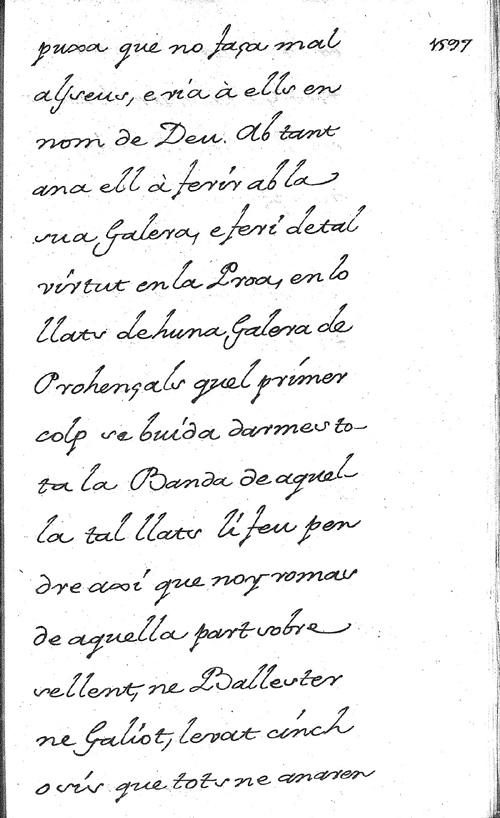 puxa que no faça mal
1597
alsseus, e via à ells en
nom de Deu. Ab tant
ana ell à ferir ab la
sua Galera, e feri de tal
virtut en la Proa, en lo
llats de huna Galera de
Prohençals quel primer
colp se buida darmes to-
ta la Banda de aquel-
la tal llats li feu pen
dre axi que noy romas
de aquella part sobre
sellent, ne Ballester
ne Galiot, levat cinch
o sis que tots ne anaren